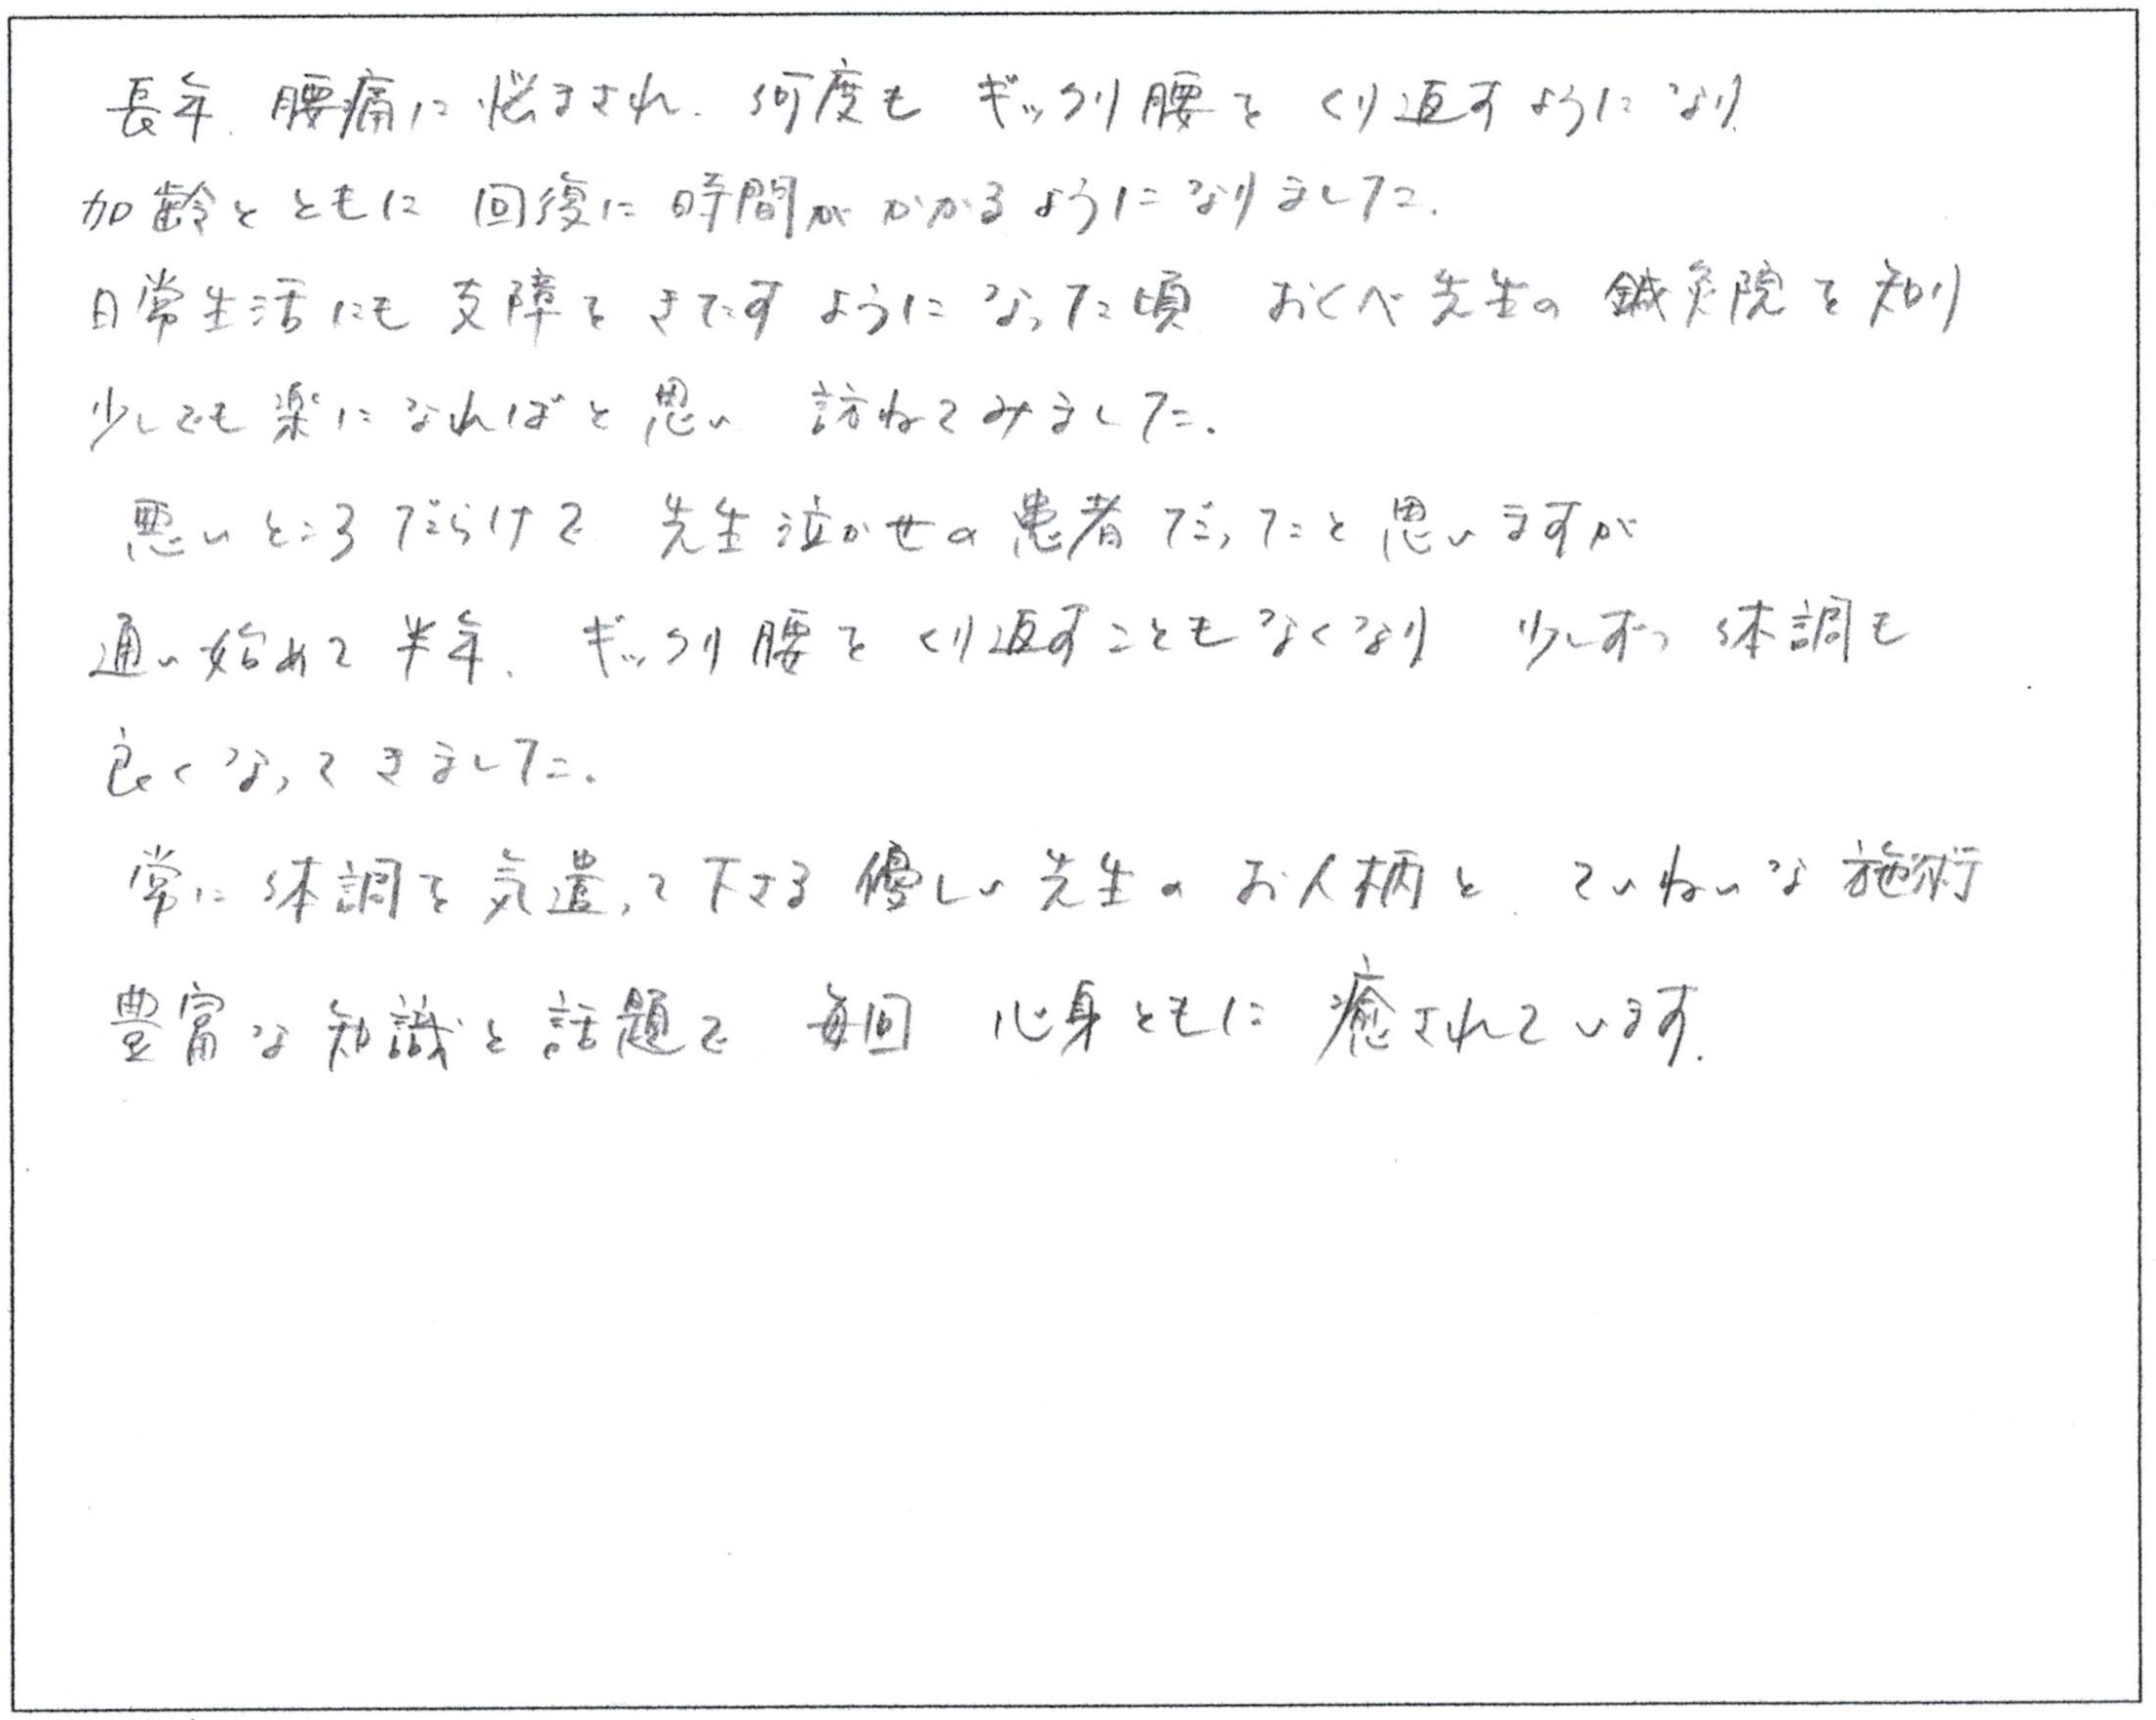 長年、腰痛に悩まされ、何度も ギックリ腰を くり返すように なり、
加齢と ともに 回復に 時間が かかるように なりました。
日常生活にも 支障を きたす ように なった頃 おくべ先生の 鍼灸院を 知り
少しでも 楽に なればと 思い 訪ねてみました。
悪いところだらけで 先生泣かせの 患者だったと 思いますが
通い始めて 半年、ギックリ腰を くり返すことも なくなり 少しずつ 体調も
良くなってきました。
常に 体調を 気遣って下さる 優しい 先生の お人柄と、ていねいな 施術
豊富な 知識と 話題で 毎回 心身ともに 癒されています。